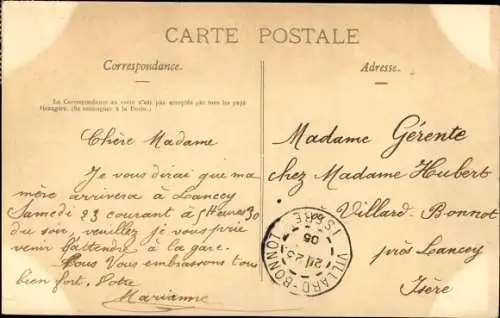 CARTE POSTALE
Correspondance.
La Correspondance au verso n'est pas acceptée par tous les pays
étrangers. (Se renseigner à la Poste.)
Chère Madame
Je vous dirai que ma
mère arrivera à Lancey
Samedi 23 courant à 5 heures 30
du soir, veuillez je vous prie
venir l'attendre à la gare.
Nous Vous embrassons tous
bien fort. Votre
Marianne
Adresse.
Madame Gérente
chez Madame Hubert
à Villard-Bonnot
près Lancey
Isère
VILLARD-BONNOT ISÈRE